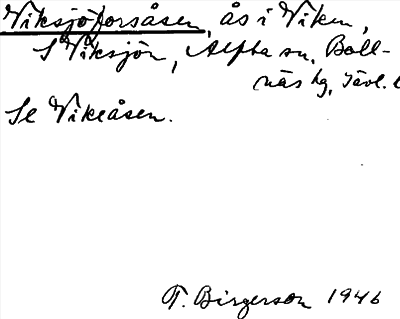 Viksjöforsåsen, ås i Viken,
S Viksjön, Alfta sn, Boll-
näs tg, Jävl. l
Se Vikeåsen.
T. Birgerson 1946